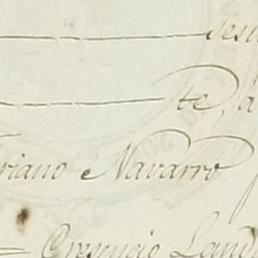 te, á
riano Navarro
Crescencio Land